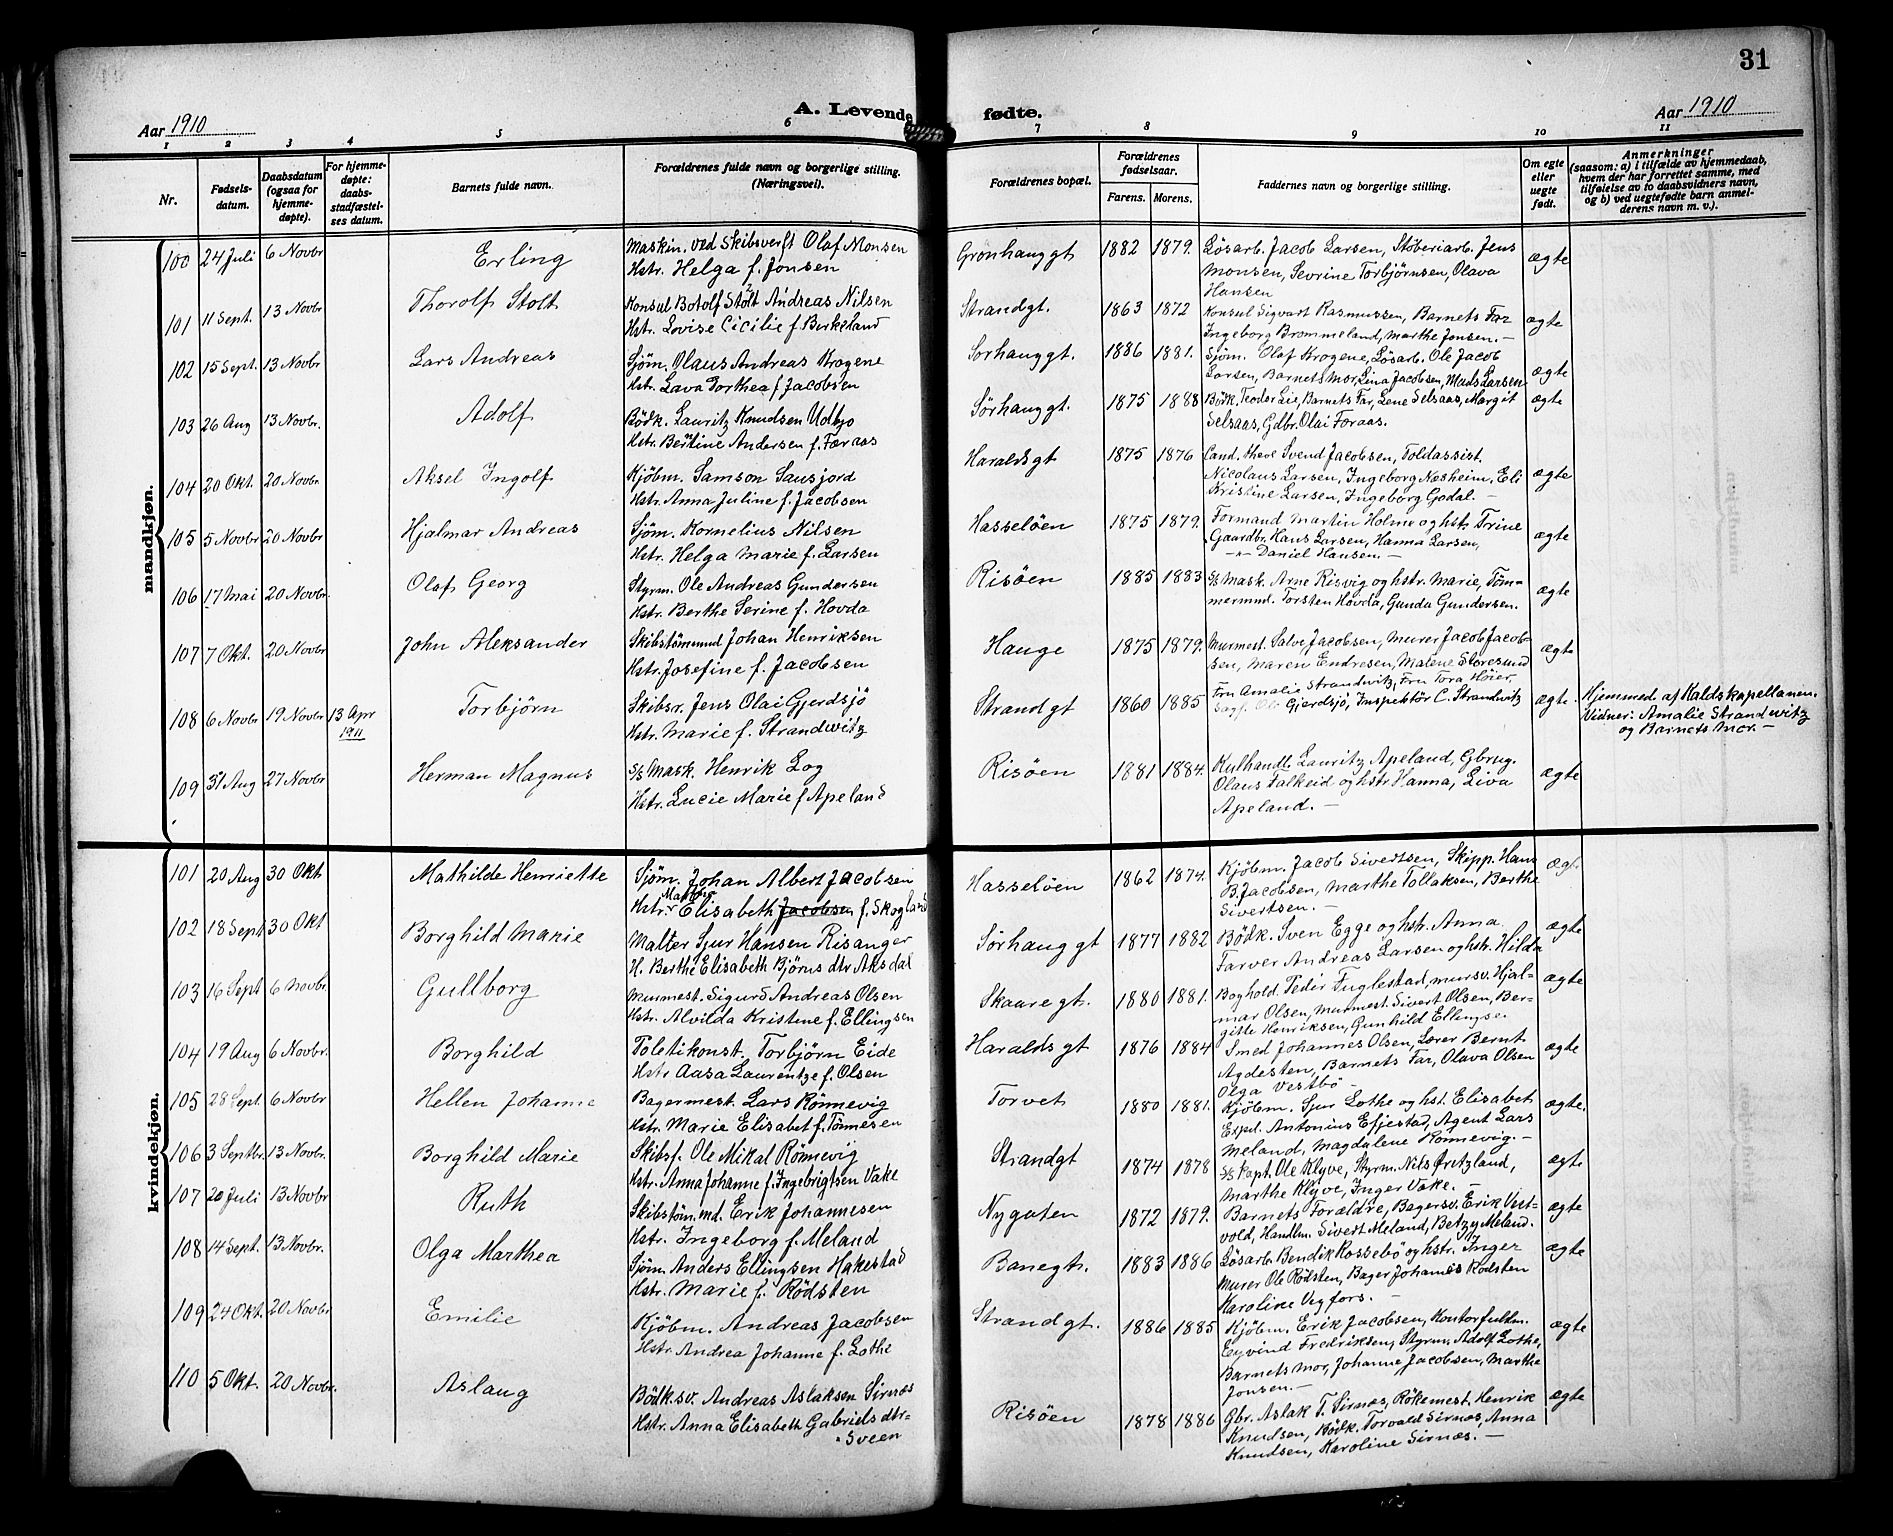 31
A. Levende fødte.
Aar 1910
Aar 1910
1 2 3 4 5 6 7 8 9 10 11
Nr.
Fødsels-
datum.
Daabsdatum
(ogsaa for
hjemme-
døpte).
For hjemme-
døpte:
daabs-
stadfæstel-
ses datum.
Barnets fulde navn.
Forældrenes fulde navn og borgerlige stilling.
(Næringsvei).
Forældrenes bopæl.
Forældrenes
fødselsaar.
Farens. Morens.
Faddernes navn og borgerlige stilling.
Om egte
eller
uegte
født.
Anmerkninger
(saasom: a) i tilfælde av hjemmedaab,
hvem der har forrettet samme, med
tilføielse av to daabsvidners navn,
og b) ved uegtefødte barn anmel-
derens navn m. v.).
mandkjøn.
100 24 Juli 6 Novbr Erling
Maskin. ved Skibsverft Olaf Monsen
Hstr. Helga f. Jonsen
Grönhauggt 1882 1879.
Løsarb. Jacob Larsen, Støberiarb. Jens
Monsen, Sevrine Torbjörnsen, Olava
Hansen
ægte
101 11 Sept. 13 Novbr Thorolf Stolt
Konsul Botolf Stolt Andreas Nilsen
Hstr. Lovise Cicilie f. Berkeland
Strandgt. 1863 1872
Konsul Sigvart Rasmussen, Barnets Far
Ingeborg Brommeland, Marthe Jonsen. –
ægte
102 15 Sept. 13 Novbr Lars Andreas
Sjøm. Olaus Andreas Krogene
Hstr. Lava Dorthea f Jacobsen
Sörhauggt. 1886 1881.
Sjøm. Olaf Krogene, Løsarb. Ole Jacob
Larsen, Barnets Mor, Lina Jacobsen, Mads Larsen
ægte
103 26 Aug 13 Novbr. Adolf
Bödk. Lauritz Knudsen Udbjo
Hstr. Bertine Andersen f. Færaas
Sörhauggt. 1875 1888
Bödk. Teodor Lie, Barnets Far, Lene Selsaas, Margit
Selsaas, Gdbr. Olai Foraas.
ægte
104 20 Okt. 20 Novbr Aksel Ingolf
Kjöbm. Samson Sausjord
Hstr. Anna Juline f. Jacobsen
Haraldsgt 1875 1876
Cand. theol Svend Jacobsen, Toldassist.
Nicolaus Larsen, Ingeborg Næsheim, Eli
Kristine Larsen, Ingeborg Godal. –
ægte
105 5 Novbr 20 Novbr Hjalmar Andreas
Sjøm. Kornelius Nilsen
Hstr. Helga Marie f. Larsen
Hasselöen 1875 1879.
Formand Martin Holme og hstr. Trine
Gaardbr. Hans Larsen, Hanna Larsen,
–"– Daniel Hansen. –
ægte
106 17 Mai 20 Novbr. Olaf Georg
Styrm. Ole Andreas Gundersen
Hstr. Berthe Serine f. Hovda
Risöen 1885 1883
S/S Mask. Arne Risvig og hstr. Marie, Töm-
mermnd. Torsten Hovda, Gunda Gundersen.
ægte
107 7 Okt. 20 Novbr John Aleksander
Skibstömmmd Johan Henriksen
Hstr. Josefine f. Jacobsen
Hauge 1875 1879.
Murmest. Salve Jacobsen, Murer Jacob Jacob-
sen, Maren Endresen, Malene Storesund
ægte
108 6 Novbr 19 Novbr 13 Apr
1911
Torbjörn
Skibsr. Jens Olai Gjerdsjö
Hstr. Marie f. Strandwitz
Strandgt 1860 1885
Fru Amalie Strandwitz, Fru Tora Höier,
Sagf. Ole Gjerdsjö, Inspektör C. Strandwitz
ægte.
Hjemmed. af Kaldskapellanen.
Vidner: Amalie Strandwitz
og Barnets Mor. –
109 31 Aug 27 Novbr Herman Magnus
S/S Mask. Henrik Log
Hstr. Lucie Marie f Apeland
Risöen 1881 1884.
Kulhandl. Lauritz Apeland, Gbrug.
Olaus Falkeid og hstr Hanna, Liva
Apeland. –
ægte
kvindekjøn.
101 20 Aug 30 Okt Mathilde Henriette
Sjøm. Johan Albert Jacobsen
Hstr. Elisabeth Jacobsen f. Skogland
Hasselöen 1862 1874.
Kjöbm. Jacob Sivertsen, Skipp. Hans
B. Jacobsen, Marthe Tollaksen, Berthe
Sivertsen. –
102 18 Sept 30 Okt Borghild Marie
Malter Sjur Hansen Risanger
H. Berthe Elisabeth Björnsdtr Aksdal
Sörhauggt 1877 1882
Bödk. Sven Egge og hstr. Anna
Farver Andreas Larsen og hstr. Hilda
ægte
103 16 Sept 6 Novbr. Gullborg
Murmest. Sigurd Andreas Olsen
Hstr. Alvilda Kristene f. Ellingsen
Skaaregt. 1880 1881.
Boghold. Peder Fuglestad, Mursv. Hjal-
mar Olsen, Murmest. Sivert Olsen, Ber-
gitte Henriksen, Gunhild Ellingse.
ægte
104 19 Aug 6 Novbr. Borghild
Poletikonst. Torbjörn Eide
Hstr Aasa Laurentze f. Olsen
Haraldsgt 1876 1884
Smed Johannes Olsen, Lærer Bernt
Agdesten, Barnets Far, Olava Olsen
Olga Vestbö –
ægte
105 28 Sept. 6 Novbr Hellen Johanne
Bagermest. Lars Rönnevig
Hstr. Marie Elisabet f. Tönnesen
Torvet 1880 1881.
Kjöbm. Sjur Lothe og hst. Elisabet
Exped. Antonius Efjestad, Agent Lars
Meland, Magdalene Rönnevig. –
ægte.
106 3 Septbr. 13 Novbr. Borghild Marie
Skibsf. Ole Mikal Rönnevig
Hstr. Anna Johanne f. Ingebrigtsen Vake
Strandgt 1874 1878
S/S Kapt. Ole Klyve, Styrm. Nils Fritzland,
Marthe Klyve, Inger Vake. –
ægte
107 20 Juli 13 Novbr Ruth
Skibstöm.md. Erik Johannesen
Hstr. Ingeborg f. Meland
Nygaten 1872 1879.
Barnets Forældre, Bagersv. Erik Vest-
vold, Handlm. Sivert Meland, Betzy Meland.
ægte
108 14 Sept. 13 Novbr. Olga Marthea
Sjøm. Anders Ellingsen Hakestad
Hstr. Marie f. Rödsten
Banegt. 1883 1886
Løsarb. Bendik Rossebö og hstr. Inger
Murer Ole Rödsten, Bager Johannes Rödsten
Karoline Vegfors. –
ægte
109 24 Okt. 20 Novbr Emilie
Kjöbm. Andreas Jacobsen
Hstr. Andrea Johanne f. Lothe
Strandgt. 1886 1885
Kjöbm. Erik Jacobsen, Kontorfuldm.
Eyvind Fredriksen, Styrm. Adolf Lothe,
Barnets Mor, Johanne Jacobsen, Marthe
Jonsen. –
ægte
110 5 Okt. 20 Novbr. Aslaug
Bödk.sv. Andreas Aslaksen Sirnæs
Hstr. Anna Elisabeth Gabrielsdtr-
Sveen
Risöen 1878 1886
Gbr. Aslak T. Sirnæs, Rökemest. Henrik
Knudsen, Bödk. Torvald Sirnæs, Anna
Knudsen, Karoline Sirnæs. –
ægte